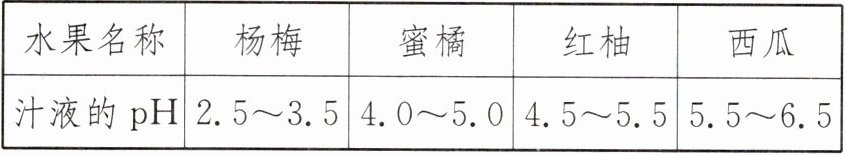 水果名称 杨梅 蜜橘 红柚 西瓜
汁液的 pH 2.5～3.5 4.0～5.0 4.5～5.5 5.5～6.5